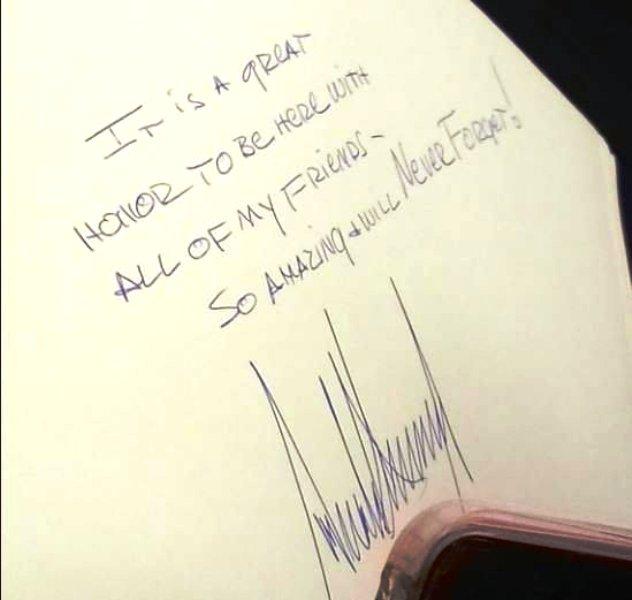 It is a great
honor to be here with
all of my friends-
So amazing + will Never Forget!